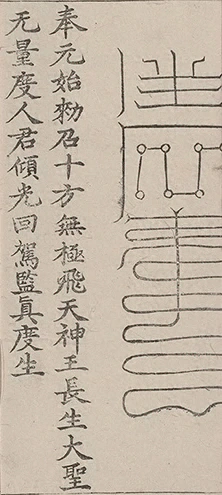 奉元始勑召十方無極飛天神王長生大聖
无量度人君傾光回駕監眞度生